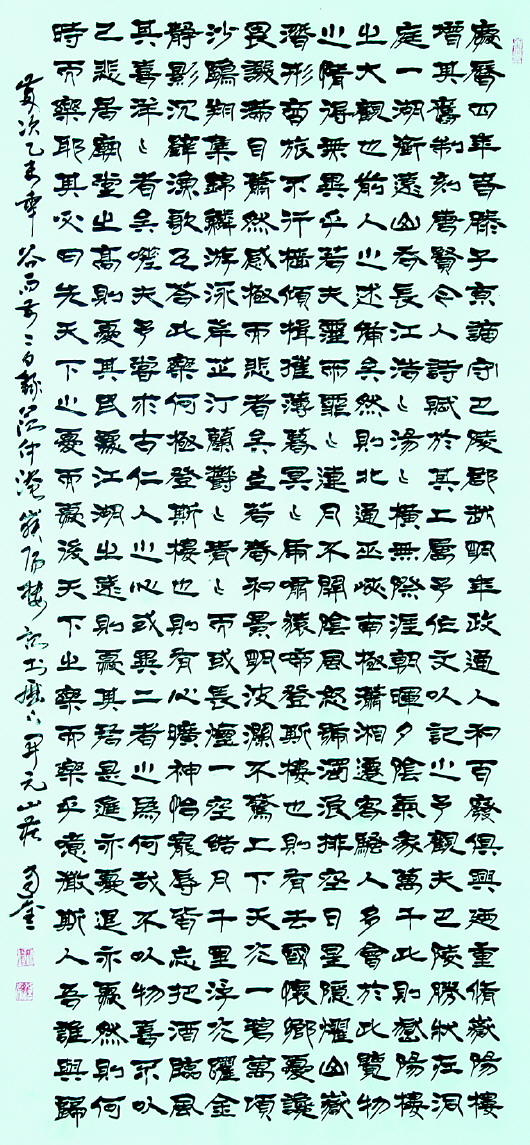 慶曆四年春滕子京謫守巴陵郡越明年政通人和百廢俱興廼重脩嶽陽樓
增其舊制刻唐賢今人詩賦於其上屬予作文以記之予觀夫巴陵勝狀在洞
庭一湖銜遠山吞長江浩〻湯〻橫無際涯朝暉夕陰氣象萬千此則嶽陽樓
之大觀也前人之述備矣然則北通巫峽南極瀟湘遷客騷人多會於此覽物
之情得無異乎若夫霪雨霏〻連月不開陰風怒號濁浪排空日星隱耀山嶽
潛形商旅不行檣傾楫摧薄暮冥〻虎嘯猿啼登斯樓也則有去國懷鄉憂讒
畏譏滿目蕭然感極而悲者矣至若春和景明波瀾不驚上下天光一碧萬頃
沙鷗翔集錦鱗游泳岸芷汀蘭鬱〻青〻而或長煙一空皓月千里浮光躍金
靜影沉璧漁歌互答此樂何極登斯樓也則有心曠神怡寵辱皆忘把酒臨風
其喜洋〻者矣嗟夫予嘗求古仁人之心或異二者之為何哉不以物喜不以
己悲居廟堂之高則憂其民處江湖之遠則憂其君是進亦憂退亦憂然則何
時而樂耶其必曰先天下之憂而憂後天下之樂而樂乎噫微斯人吾誰與歸
歲次乙未年谷雨前二日錄范仲淹嶽陽樓記於歷下開元山莊